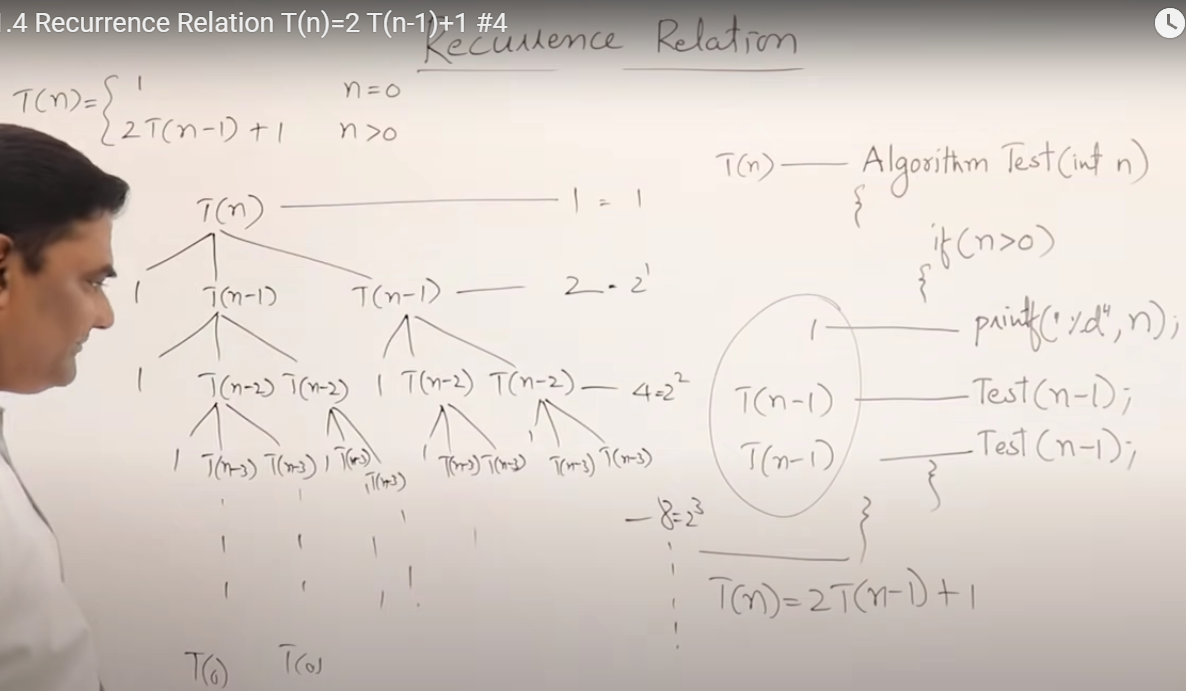 .4 Recurrence Relation T(n)=2 T(n-1)+1 #4
Recurrence Relation
T(n)= { 1 n=0
2T(n-1)+1 n>0
T(n) — 1 = 1
1 T(n-1) T(n-1) — 2 = 2¹
1 T(n-2) T(n-2) 1 T(n-2) T(n-2) — 4=2²
1 T(n-3) T(n-3) 1 T(n-3) 1 T(n-3) T(n-3) 1 T(n-3) T(n-3)
1 T(n-3)
— 8=2³
T(0) T(0)
T(n) — Algorithm Test(int n)
{
if(n>0)
{
1 — printf("%d", n);
T(n-1) — Test(n-1);
T(n-1) — Test(n-1);
}
}
T(n)=2T(n-1)+1